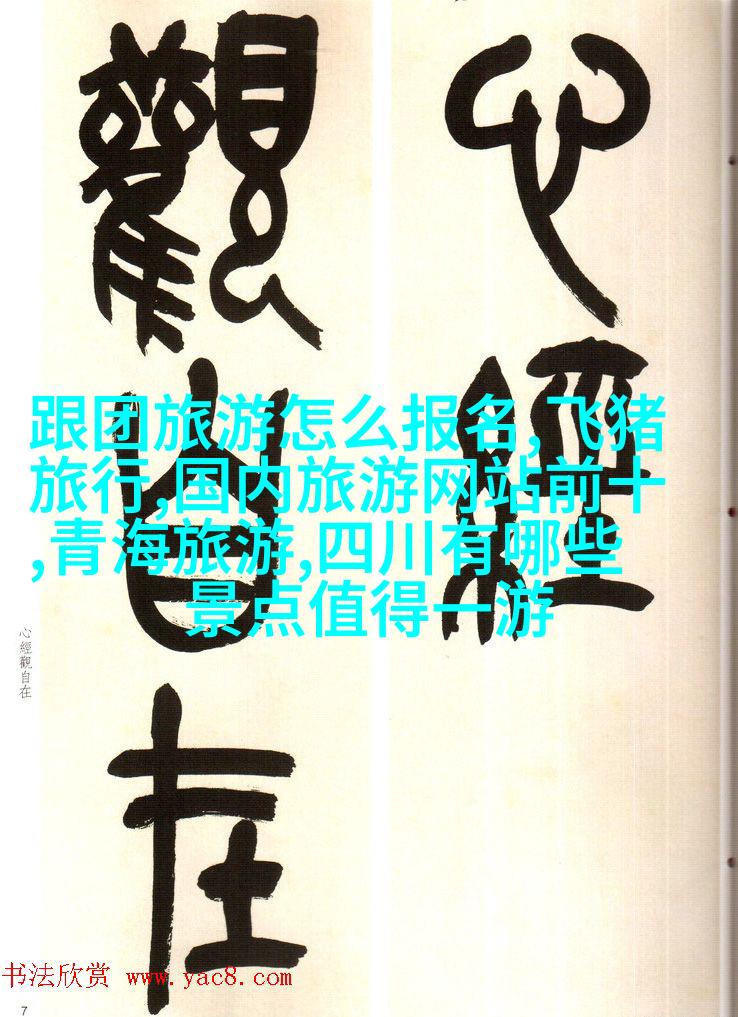 心經
觀自在
跟团旅游怎么报名,飞猪
旅行,国内旅游网站前十
,青海旅游,四川有哪些
景点值得一游
心經觀自在
书法欣赏 www.yac8.com
7